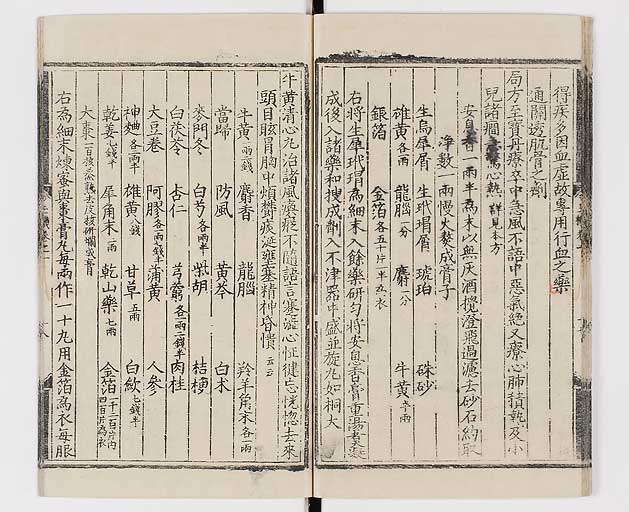 得疾多因血虛故專用行血之藥
通關透肌骨之劑
局方至寶丹療卒中急風不語中惡氣絕又療心肺積熱及小
兒諸癎 心熱 詳見本方
安息香一兩半為末以無灰酒攪澄飛過濾去砂石約取
淨數一兩慢火熬成膏子
生烏犀屑 生玳瑁屑 琥珀 硃砂
雄黃各一兩 龍腦一分 麝一分 牛黃半兩
銀箔 金箔各五十片一半為衣
右將生犀玳瑁為細末入餘藥研勻將安息香膏重湯煮凝
成後入諸藥和搜成劑入不津器中盛並旋丸如桐大
牛黃清心丸治諸風瘓瘲不隨語言蹇澁心怔健忘恍惚去來
頭目眩冒胸中煩鬱痰涎壅塞精神昏憒云云
牛黃一兩二錢 麝香 龍腦 羚羊角末各一兩
當歸 防風 黃芩 白朮
麥門冬 白芍各一兩半 柴胡 桔梗
白茯苓 杏仁 芎藭各一兩二錢半 肉桂
大豆卷 阿膠各一兩七錢半 蒲黃 人參
神麯各二兩半 雄黃八錢 甘草五兩 白斂七錢半
乾姜七錢半 犀角末二兩 乾山藥七兩 金箔一千二百片內四百片為衣
大棗一百枚蒸熟去皮核研爛成膏
右為細末煉蜜與棗膏丸每兩作一十丸用金箔為衣每服